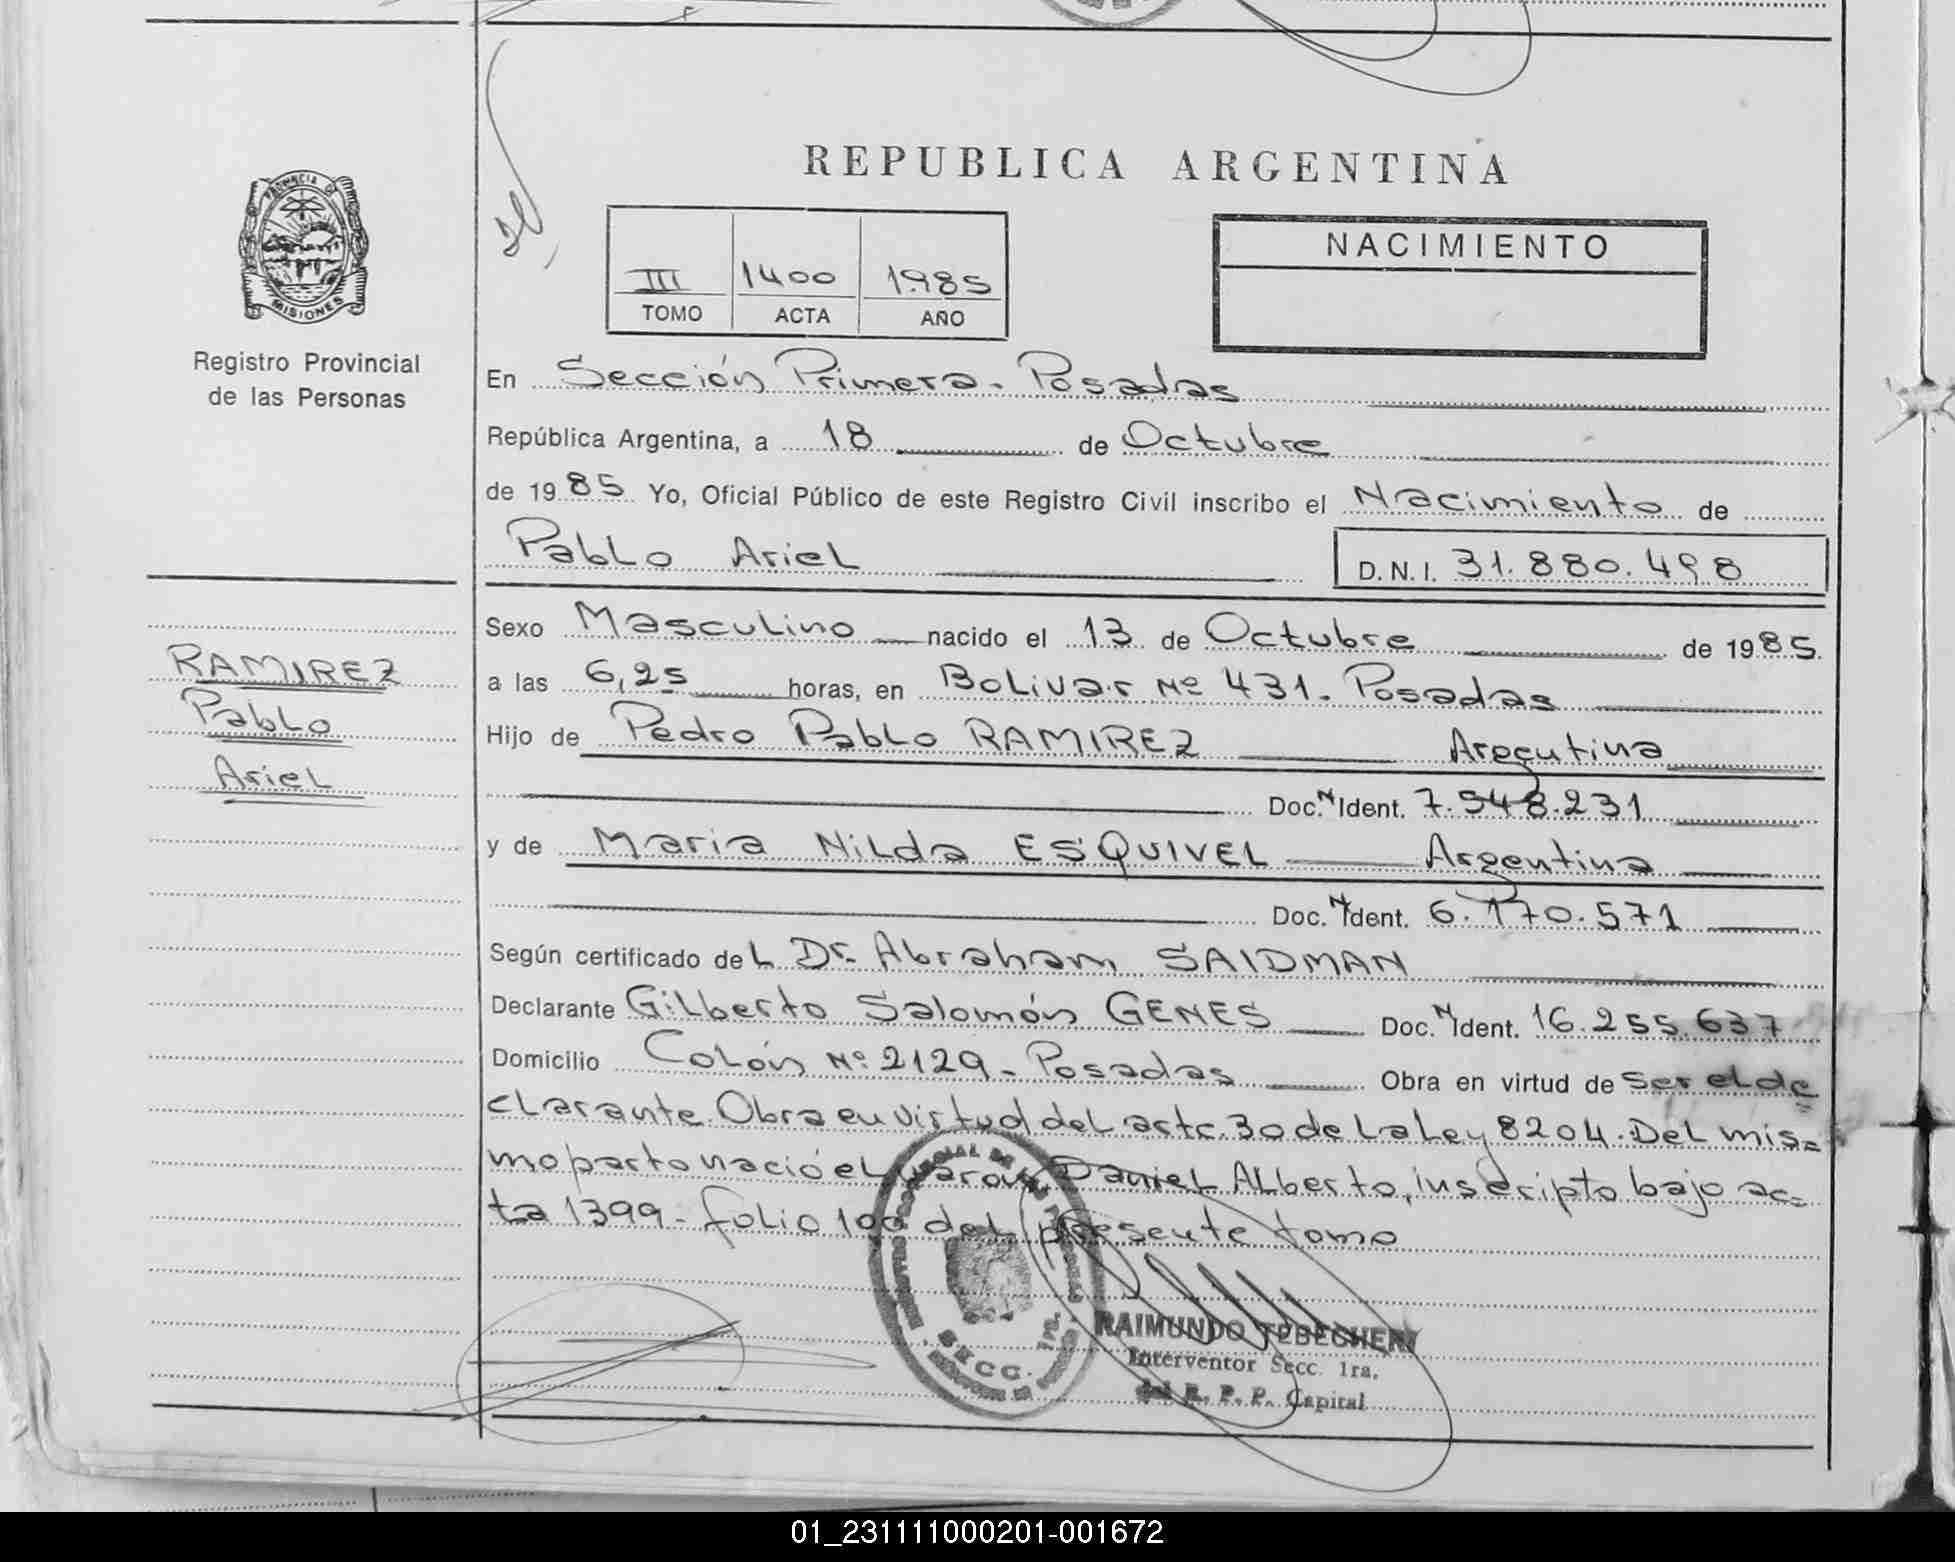 REPUBLICA ARGENTINA
PROVINCIA DE
MISIONES
Registro Provincial
de las Personas
III 1400 1985
TOMO ACTA AÑO
NACIMIENTO
En Sección Primera - Posadas
República Argentina, a 18 de Octubre
de 1985 Yo, Oficial Público de este Registro Civil inscribo el Nacimiento de
Pablo Ariel D.N.I. 31.880.498
RAMIREZ
Pablo
Ariel
Sexo Masculino nacido el 13 de Octubre de 1985.
a las 6,25 horas, en Bolivar Nº 431. Posadas
Hijo de Pedro Pablo RAMIREZ Argentina
Doc. N Ident. 7.548.231
y de Maria Nilda ESQUIVEL Argentina
Doc. N Ident. 6.170.571
Según certificado del Dr. Abraham SAIDMAN
Declarante Gilberto Salomón GENES Doc. N Ident. 16.255.637
Domicilio Colón Nº 2129 - Posadas Obra en virtud de ser el de
clarante. Obra en virtud del artc. 30 de la Ley 8204. Del mis=
mo parto nació el varon Daniel Alberto, inscripto bajo ac=
ta 1399 - folio 100 del presente tomo
SECC. 1ra.
RAIMUNDO TEBECHERI
Interventor Secc. 1ra.
del R. P. P. Capital
01_231111000201-001672